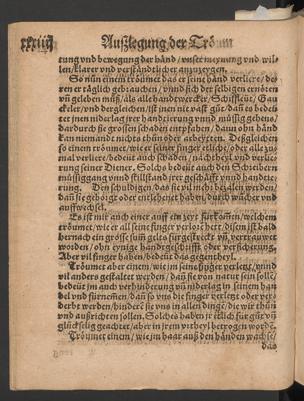 xxxiiij Außlegung der Tröum
tung vnd bewegung der händ / vnser meynung vnd wil-
len / klarer vnd verständtlicher anzuzeygen.
So nun einem träumet das er seine händ verliere / de-
ren er täglich gebrauchen / vnnd sich der selbigen ernören
vn geleben muß / als alle handwercker / Schiffleüt / Gau
ckeler / vnd dergleichen / ist jnen nit vast gůt / dañ es bedeü-
tet jnen niderlag jrer handtierung vnnd müssig gehens /
dardurch sie grossen schaden empfahen / dann ohn händ
kan niemands nichts thůn oder arbeyten. Deßgleichen
so einem tröumet / wie er seiner finger etliche / oder alle zů-
mal verliere / bedeüt auch schaden / nachtheyl vnd verlie-
rung seiner Diener. Solchs bedeüt auch den Schreibern
müssiggang vnnd stillstand jrer geschäfft vnnd handtie-
rung. Den schuldigen / das sie vil mehr bezalen werden /
dañ sie gehörgt oder entlehenet haben / durch wůcher vnd
auffwechsel.
Es ist mir auch einer auff ein zeyt fürkomen / welchem
tröumet / wie er all seine finger verlore hett / disem ist bald
hernach ein grosse sum̃ gelts fürgestreckt vn̄ vertrauwet
worden / ohn eynige handtgeschrifft oder versicherung.
Aber vil finger haben / bedeüt das gegentheyl.
Tröumet aber einem / wie jm seine finger verletzt / vnnd
vil anders gestaltet werden / dañ sie von natur sein solle /
bedeüt jm auch verhinderung vn̄ niderlag in seinem han
del vnd fürnemen / dañ so vns die finger verletzt oder ver-
derbt werden / hinderts sie vns in allen dingē / die wir thůn
vnd außrichten sollen. Solches haben jr etlich für gůt vn̄
glückselig geachtet / aber in jrem vrtheyl betrogen worde.
Tröumet einem / wie jm haar auß den händen wachse /
das